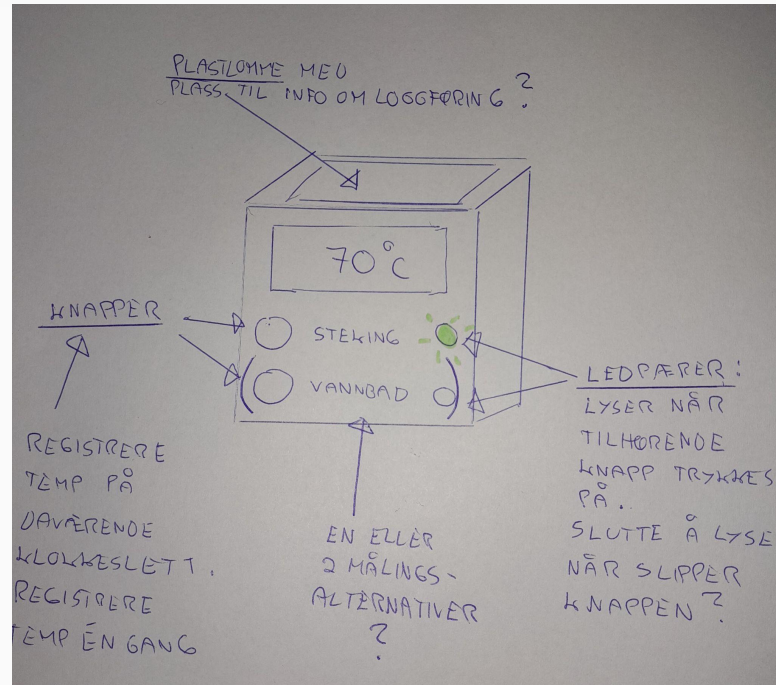 PLASTLOMME MED
PLASS TIL INFO OM LOGGFØRING?
70°C
KNAPPER
STEKING
VANNBAD
REGISTRERE
TEMP PÅ
DAVÆRENDE
KLOKKESLETT.
REGISTRERE
TEMP ÉN GANG
EN ELLER
2 MÅLINGS-
ALTERNATIVER
?
LEDPÆRER:
LYSER NÅR
TILHØRENDE
KNAPP TRYKKES
PÅ.
SLUTTE Å LYSE
NÅR SLIPPER
KNAPPEN?